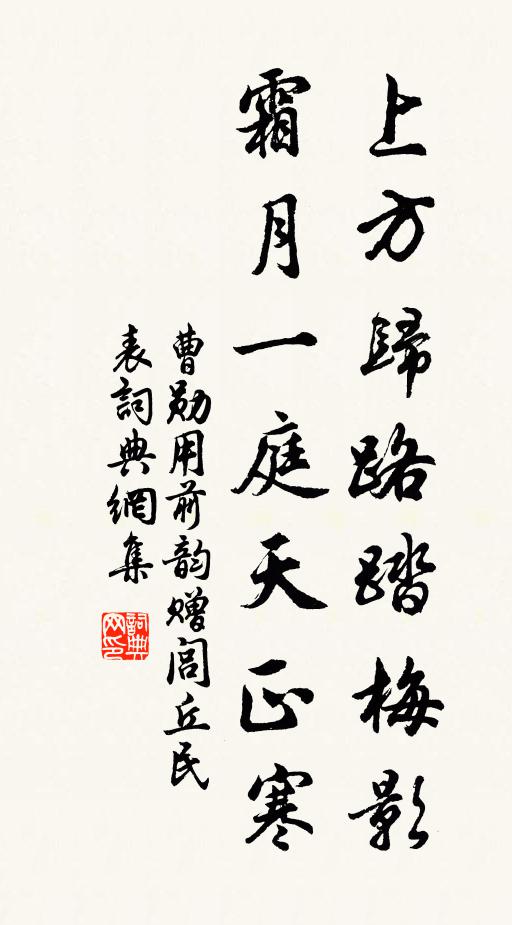 上方歸路踏梅影
霜月一庭天正寒
曹勛用前韵赠闾丘民
表詞典網集
詞典网印